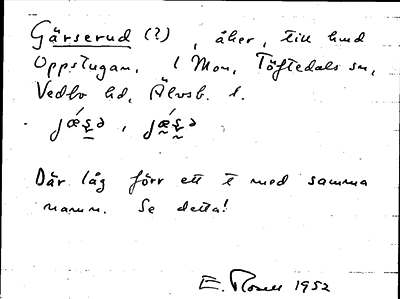 Gärserud (?) , åker, till hmd
Oppstugan, i Mon, Töftedals sn,
Vedbo hd, Älvsb. l.
jǽs̠ə , jǽ̰s̰ə
Där låg förr ett t med samma
namn. Se detta!
E. 1952